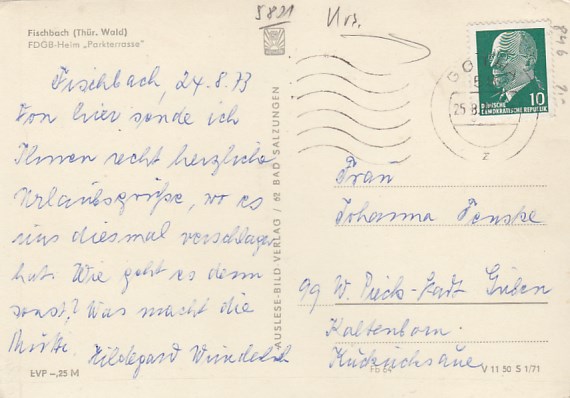 5821
Fischbach (Thür. Wald)
FDGB-Heim „Parkterrasse“
Fischbach, 24.8.73
Von hier sende ich
Ihnen recht herzliche
Urlaubsgrüße, wo es
uns diesmal verschlagen
hat. Wie geht es denn
sonst? Was macht die
Mutti.
Hildegard
EVP –,25 M
AUSLESE-BILD VERLAG / 62 BAD SALZUNGEN
10
DEUTSCHE
DEMOKRATISCHE REPUBLIK
25.8.
z
Frau
Johanna Penske
W. Pieck-Stadt Guben
Kaltenborn
Fb 64
V 11 50 S 1/71